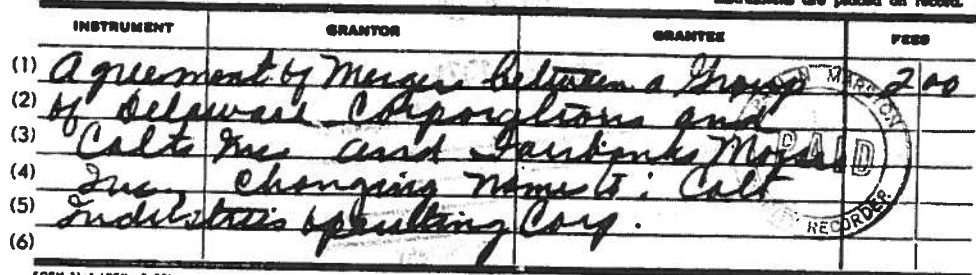 instruments are placed on record.
INSTRUMENT GRANTOR GRANTEE FEES
(1) Agreement of Merger between a Group 2 00
(2) of Delaware Corporations and
(3) Colts Inc and Fairbanks Morse
(4) Inc, changing names to: Colt
(5) Industries operating Corp.
(6)
MARSTON
PAID
RECORDER